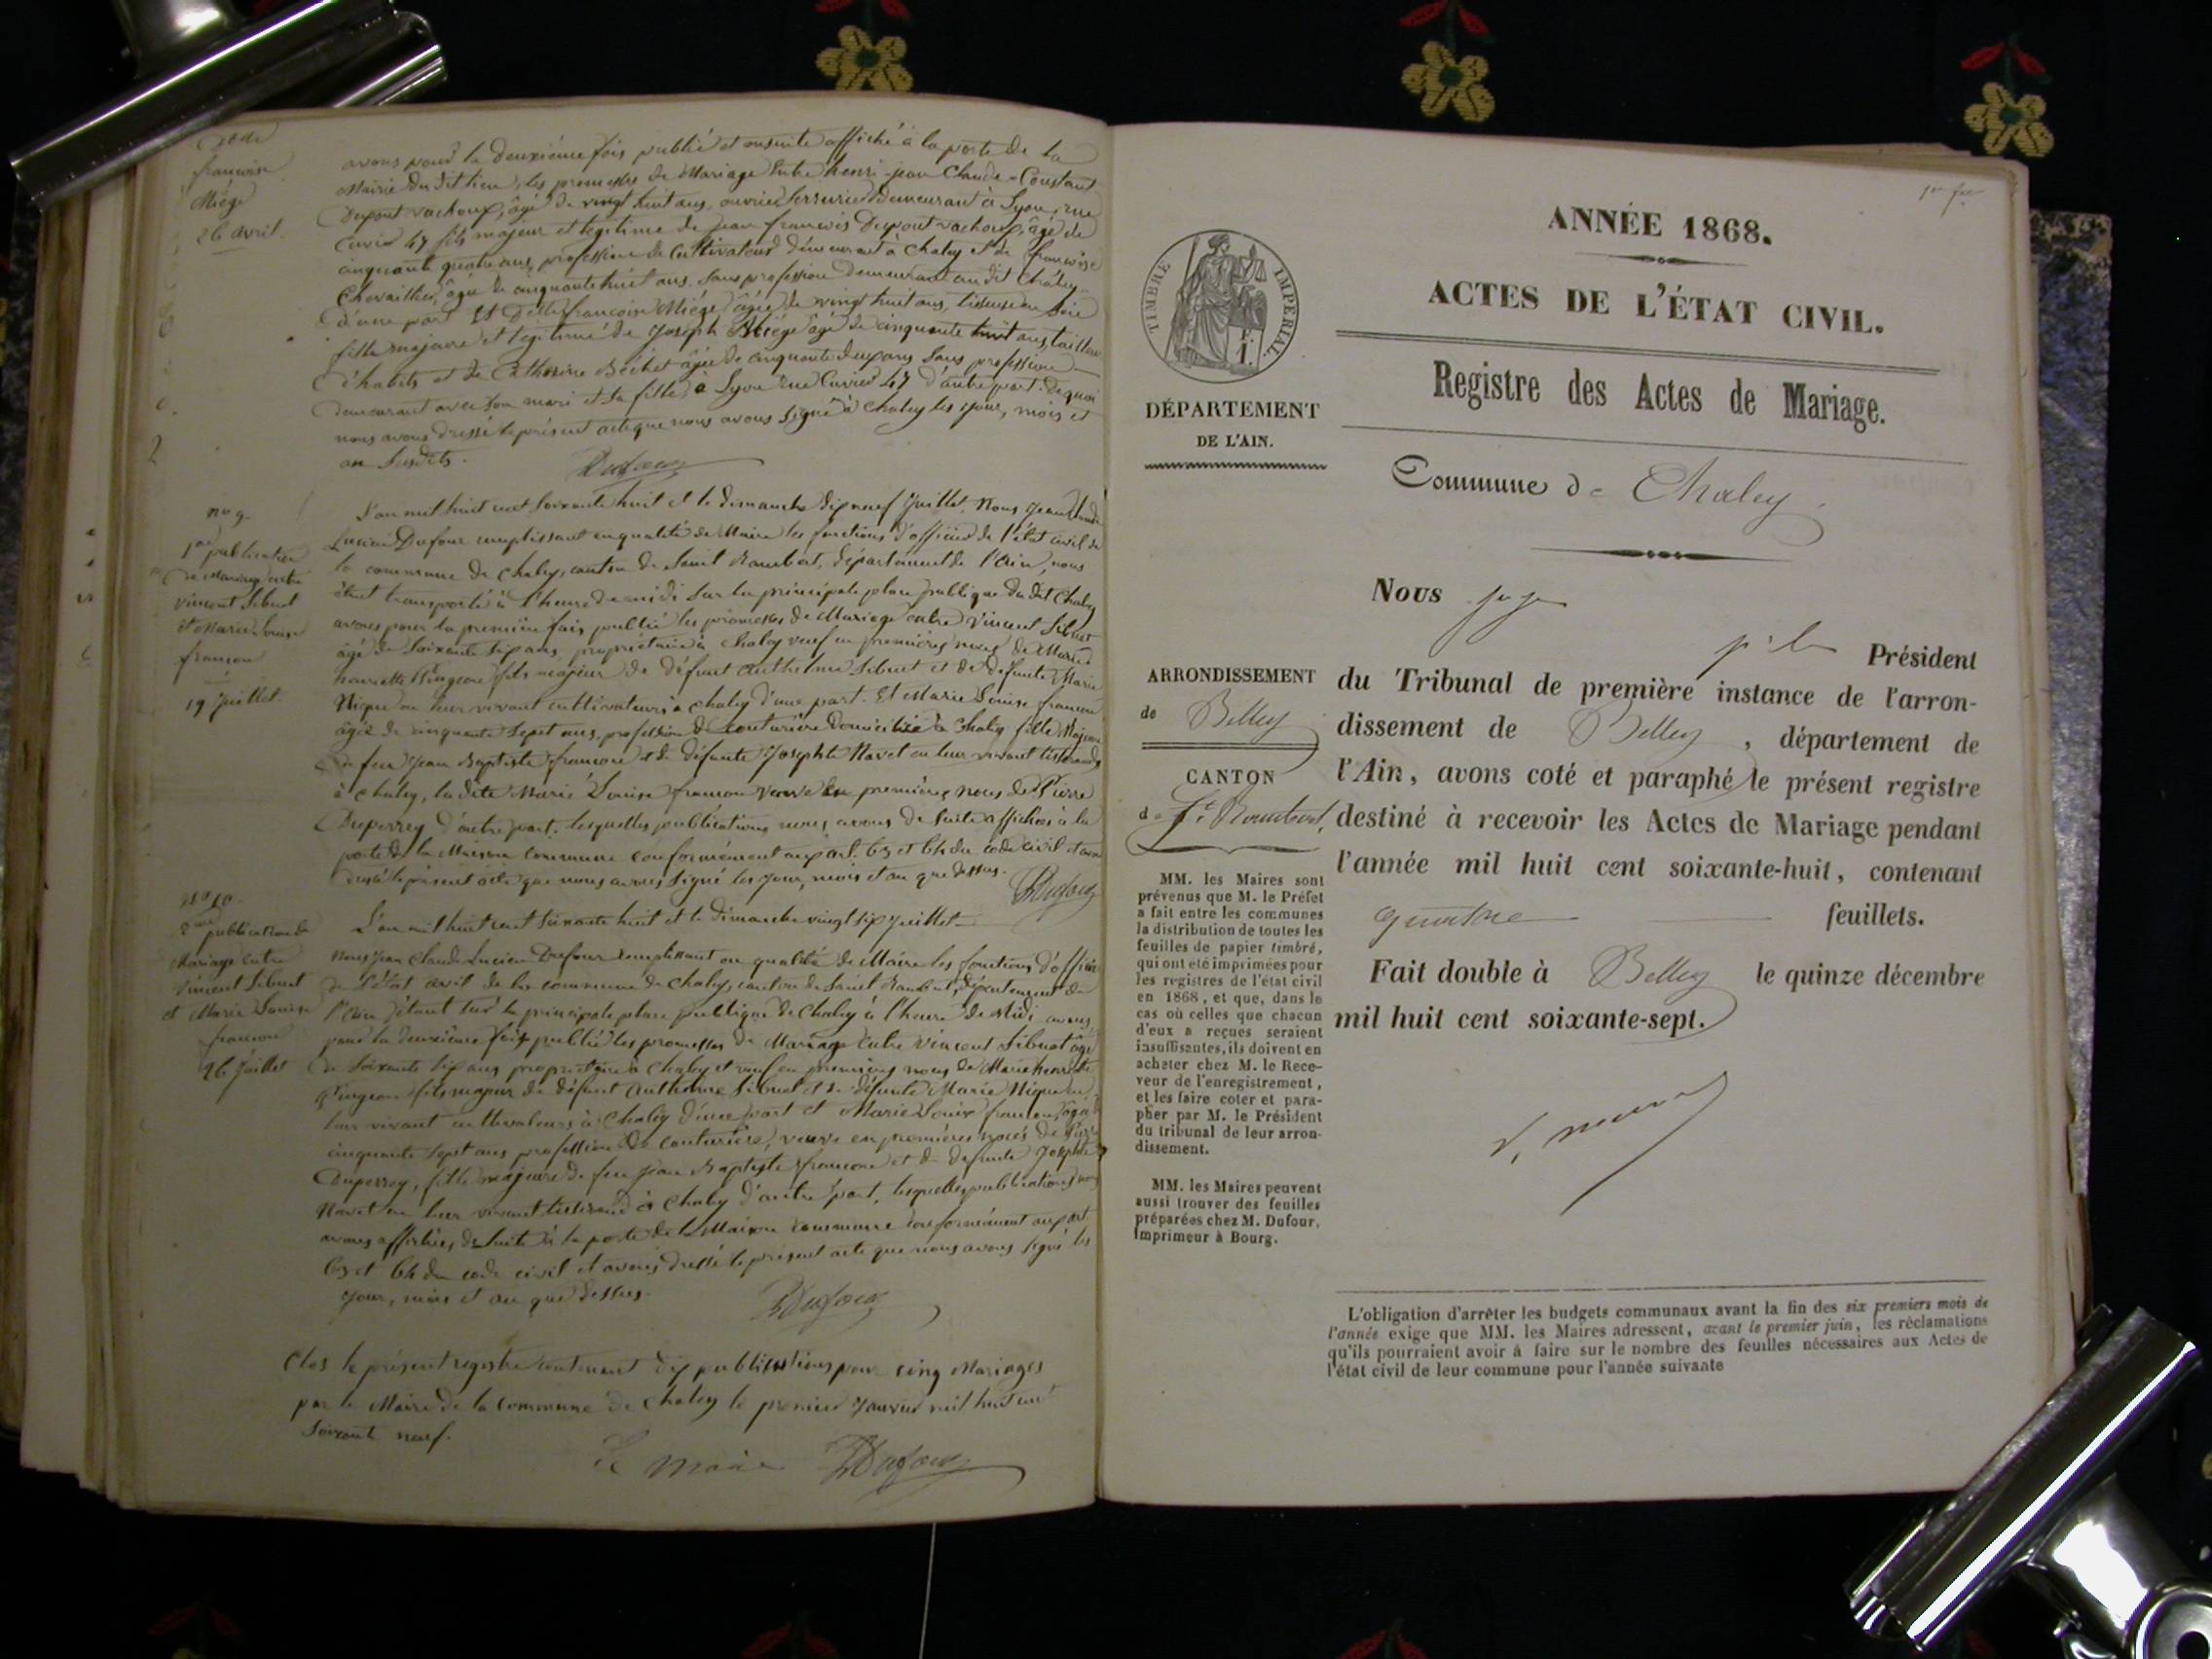 françoise
Miège
26 avril.
avons pour la deuxième fois publié et ensuite affiché à la porte de la
Mairie du dit lieu, les promesses de Mariage Entre henri-jean Claude-Constant
Dupont vachoux, âgé de vingt huit ans, ouvrier Serrurier demeurant à Lyon, rue
Cuvier 47 fils majeur et légitime de Jean françois Dupont vachoux, âgé de
cinquante quatre ans, profession de Cultivateur demeurant à Chaley et de françoise
Chevaillier, âgée de cinquante huit ans, sans profession demeurant au dit Chaley
d'une part Et Delle francoise Miège âgée de vingt huit ans, tisseuse en soie
fille majeure et legitime de Joseph Miége âgé de cinquante huit ans, tailleur
d'habits et de Catherine Béchet âgée de cinquante deux ans Sans profession
demeurant avec son mari et sa fille à Lyon rue Cuvier 47 d'autre part. de quoi
nous avons dressé le présent acte que nous avons signé à Chaley les jour, mois et
an susdits.
Dufour
no 9.
1ere publication
de Mariage entre
Vincent Sibuet
et Marie Louise
francon
19 Juillet.
L'an mil huit cent soixante huit et le dimanche dix neuf Juillet. Nous Jean Claude
Lucien Dufour remplissant en qualité de Maire les fonctions d'officier de l'état civil de
la commune de Chaley, canton de Saint Rambert, département de l'Ain, nous
étant transporté à l'heure de midi sur la principale place publique du dit Chaley
avons pour la première fois publié les promesses de Mariage entre Vincent Sibuet
âgé de soixante six ans, propriétaire à Chaley veuf en premières noces de Marie
henriette Pingeon fils majeur de défunt Anthelme Sibuet et de défunte Marie
Nique en leur vivant cultivateurs à Chaley d'une part. Et Marie Louise francon
âgée de cinquante sept ans, profession de couturière domiciliée à Chaley fille Majeure
de feu Jean Baptiste francon et de défunte Josephte Navet en leur vivant tisserands
à Chaley, la dite Marie Louise francon veuve en premières noces de Pierre
Duperrey d'autre part. lesquelles publications nous avons de suite affichées à la
porte de la Maison commune conformément aux art. 63 et 64 du code civil et avons
dressé le présent acte que nous avons signé les jour, mois et an que dessus.
Dufour
no 10.
2me publication de
Mariage entre
Vincent Sibuet
et Marie Louise
francon
26 Juillet
L'an mil huit cent soixante huit et le dimanche vingt six Juillet
Nous Jean Claude Lucien Dufour remplissant en qualité de Maire les fonctions d'officier
de l'état civil de la commune de Chaley, canton de Saint Rambert, département de
l'Ain étant sur la principale place publique de Chaley à l'heure de Midi avons
pour la deuxième fois publié les promesses de Mariage Entre Vincent Sibuet âgé
de soixante six ans propriétaire à Chaley et veuf en premières noces de Marie henriette
Pingeon fils majeur de défunt Anthelme Sibuet et de défunte Marie Nique en
leur vivant cultivateurs à Chaley d'une part et Marie Louise francon, âgée de
cinquante sept ans profession de couturière, veuve en premières noces de Pierre
Duperrey, fille majeure de feu Jean Baptiste francon et de defunte Josephte
Navet en leur vivant tisserands à Chaley d'autre part, lesquelles publications nous
avons affichées, de suite à la porte de la Maison commune conformément aux art.
63 et 64 du code civil et avons dressé le présent acte que nous avons signé les
jour, mois et an que dessus.
Dufour
Clos le présent registre contenant dix publications pour cinq Mariages
par le Maire de la Commune de Chaley le premier Janvier mil huit cent
soixante neuf.
Le Maire Dufour
1er fet
ANNÉE 1868.
ACTES DE L'ÉTAT CIVIL.
Registre des Actes de Mariage.
TIMBRE IMPERIAL.
1.
DÉPARTEMENT
DE L'AIN.
Commune de Chaley
ARRONDISSEMENT
de Belley
CANTON
de St Rambert,
MM. les Maires sont
prévenus que M. le Préfet
a fait entre les communes
la distribution de toutes les
feuilles de papier timbré,
qui ont été imprimées pour
les registres de l'état civil
en 1868, et que, dans le
cas où celles que chacun
d'eux a reçues seraient
insuffisantes, ils doivent en
acheter chez M. le Rece-
veur de l'enregistrement,
et les faire coter et para-
pher par M. le Président
du tribunal de leur arron-
dissement.
MM. les Maires peuvent
aussi trouver des feuilles
préparées chez M. Dufour,
Imprimeur à Bourg.
Nous juge
Président
du Tribunal de première instance de l'arron-
dissement de Belley, département de
l'Ain, avons coté et paraphé le présent registre
destiné à recevoir les Actes de Mariage pendant
l'année mil huit cent soixante-huit, contenant
quatre feuillets.
Fait double à Belley le quinze décembre
mil huit cent soixante-sept.
L'obligation d'arrêter les budgets communaux avant la fin des six premiers mois de
l'année exige que MM. les Maires adressent, avant le premier juin, les réclamations
qu'ils pourraient avoir à faire sur le nombre des feuilles nécessaires aux Actes de
l'état civil de leur commune pour l'année suivante